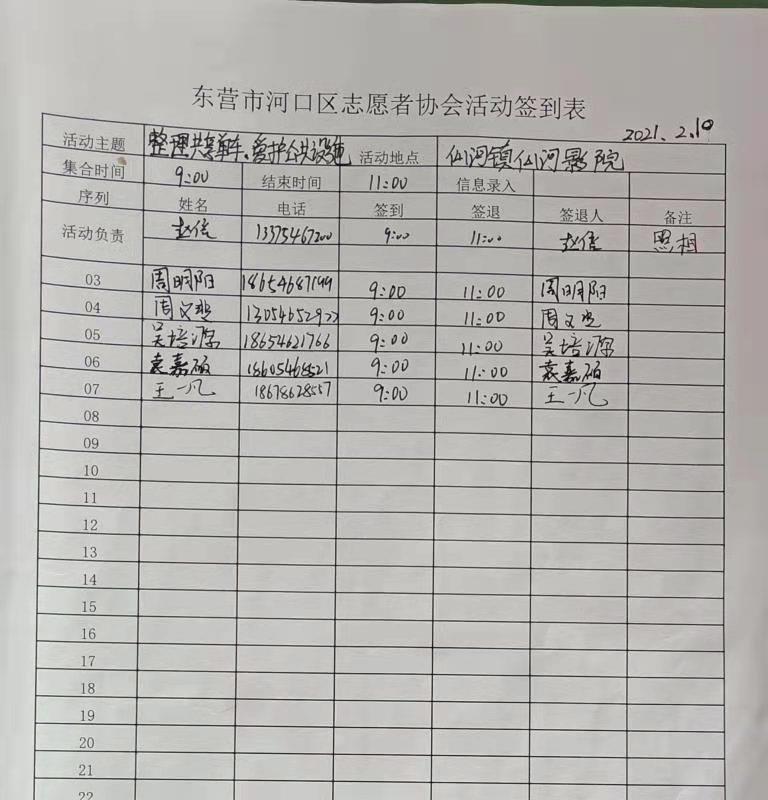 东营市河口区志愿者协会活动签到表
2021.2.10
活动主题 整理共享单车、爱护公共设施 活动地点 仙河镇仙河影院
集合时间 9:00 结束时间 11:00 信息录入
序列 姓名 电话 签到 签退 签退人 备注
活动负责 赵信 13375467200 9:00 11:00 赵信 照相
03 周明阳 18654687199 9:00 11:00 周明阳
04 周文 13054652922 9:00 11:00 周文
05 吴培源 18654621766 9:00 11:00 吴培源
06 袁嘉硕 18605468521 9:00 11:00 袁嘉硕
07 王一凡 18678628557 9:00 11:00 王一凡
08
09
10
11
12
13
14
15
16
17
18
19
20
21
22